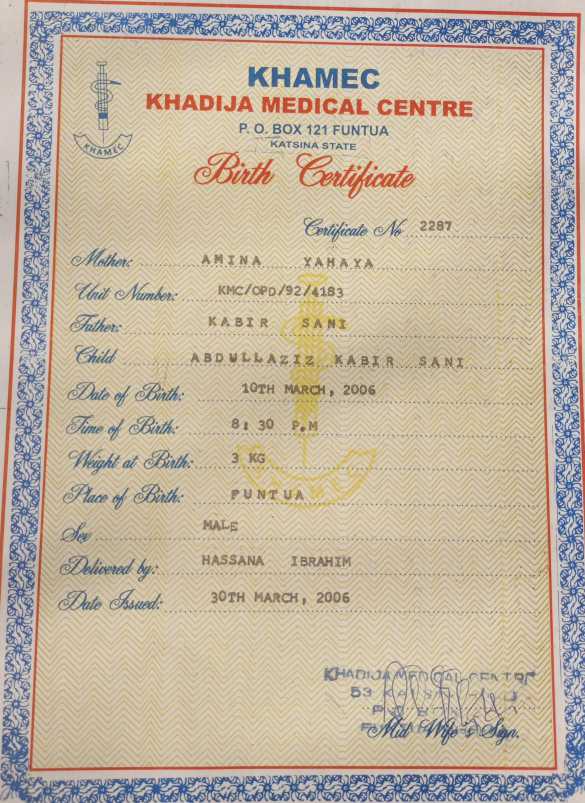 KHAMEC
KHADIJA MEDICAL CENTRE
P. O. BOX 121 FUNTUA
KATSINA STATE
KHAMEC
Birth Certificate
Certificate No 2287
Mother: AMINA YAHAYA
Unit Number: KMC/OPD/92/4183
Father: KABIR SANI
Child ABDULLAZIZ KABIR SANI
Date of Birth: 10TH MARCH, 2006
Time of Birth: 8:30 P.M
Weight at Birth: 3 KG
Place of Birth: FUNTUA
Sex MALE
Delivered by: HASSANA IBRAHIM
Date Issued: 30TH MARCH, 2006
KHADIJA MEDICAL CENTRE
53
Mid Wife's Sign.